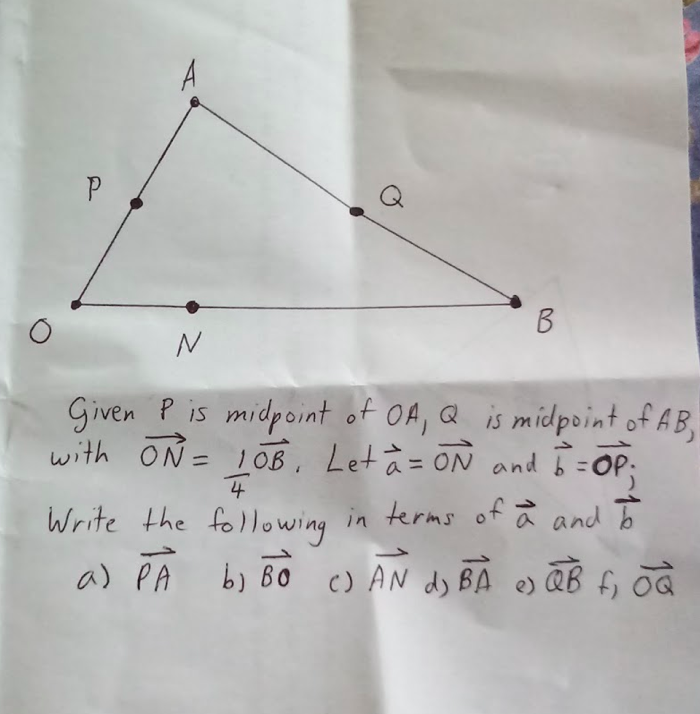 A
P
Q
O
N
B
Given P is midpoint of OA, Q is midpoint of AB,
with $\overrightarrow{ON} = \frac{1}{4}\overrightarrow{OB}$. Let $\vec{a} = \overrightarrow{ON}$ and $\vec{b} = \overrightarrow{OP}$;
Write the following in terms of $\vec{a}$ and $\vec{b}$
a) $\overrightarrow{PA}$ b) $\overrightarrow{BO}$ c) $\overrightarrow{AN}$ d) $\overrightarrow{BA}$ e) $\overrightarrow{QB}$ f) $\overrightarrow{OQ}$